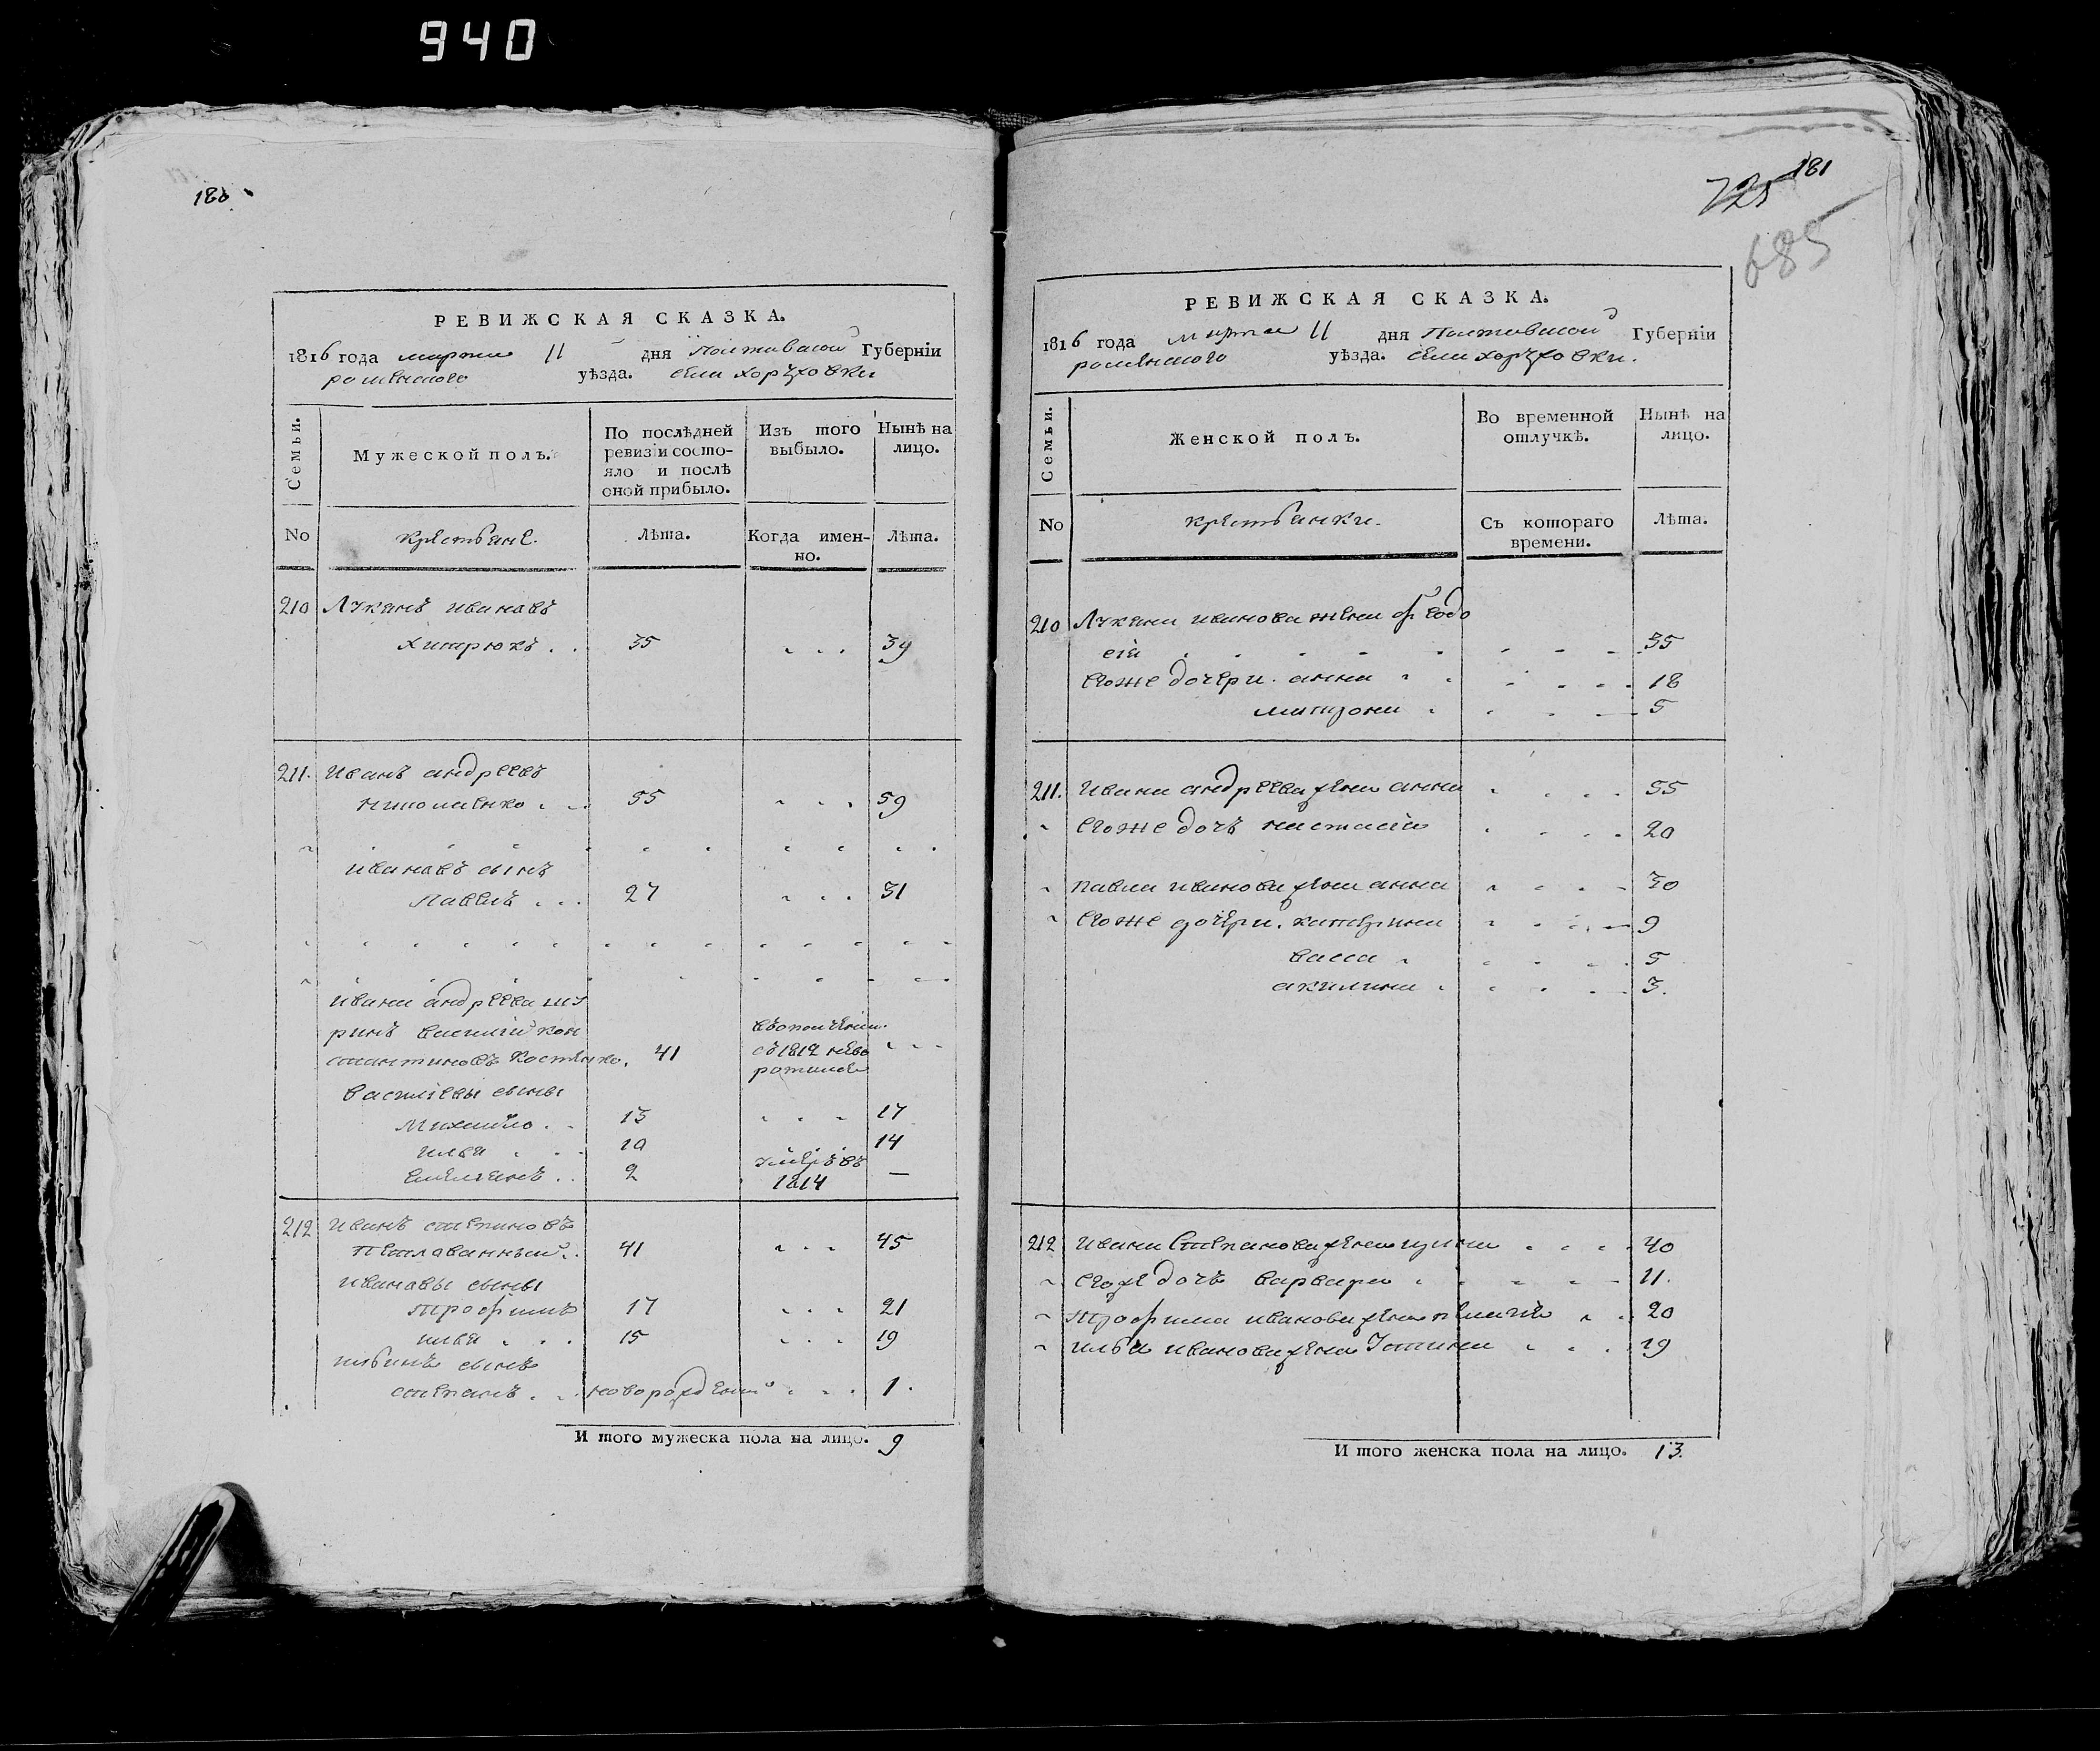 940
180
РЕВИЖСКАЯ СКАЗКА.
1816 года марта 11 дня Полтавской Губерніи
роменского уѣзда. села
Семьи.
Мужеской полъ.
По послѣдней ревизіи состояло и послѣ оной прибыло.
Изъ того выбыло.
Нынѣ на лицо.
No
крестьяне.
Лѣта.
Когда именно.
Лѣта.
210 Лукянъ ивановъ
хитрюкъ 35 39
211. Иванъ андреевъ
55 59
ивановъ сынъ
павелъ 27 31
ивана андреева шу
ринъ василий кон
стантиновъ костенко. 41
с 1812 нево
ротился
василіевы сыны
михайло 13 17
илья 10 14
емелянъ 2 умеръ въ 1814 —
212 иванъ степановъ
41 45
ивановы сыны
трофимъ 17 21
илья 15 19
ильинъ сынъ
степанъ новорожденный 1.
И того мужеска пола на лицо. 9
181
725
685
РЕВИЖСКАЯ СКАЗКА.
1816 года марта 11 дня Полтавской Губерніи
роменского уѣзда. села
Семьи.
Женской полъ.
Во временной отлучкѣ.
Нынѣ на лицо.
No
крестьянки.
Съ котораго времени.
Лѣта.
210 Лукяна иванова жена феодо
сія 35
егоже дочери. анна 18
матрона 5
211. ивана андреева жена анна 55
егоже дочъ настасія 20
павла иванова жена анна 30
егоже дочери. катерина 9
васса 5
акилина 3.
212 ивана Степанова жена ирина 40
егоже дочъ варвара 11.
трофима иванова жена 20
ильи иванова жена Устина 19
И того женска пола на лицо. 13.